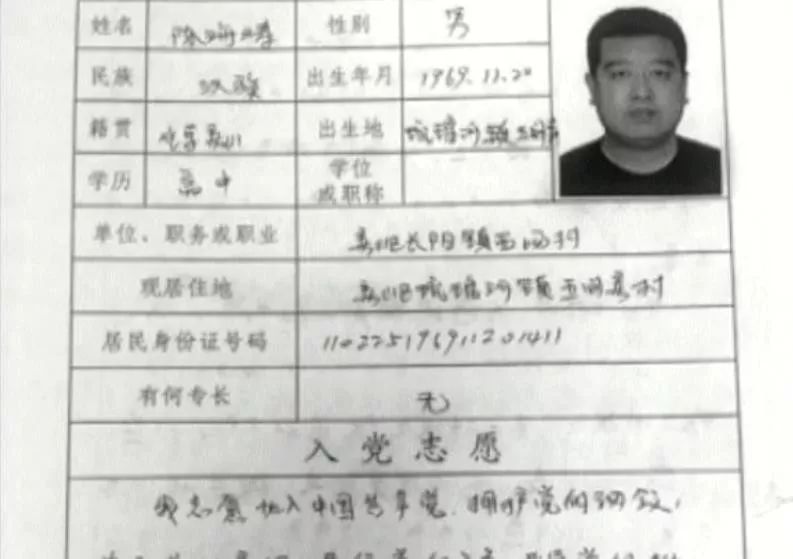 姓名 陈海涛 性别 男
民族 汉族 出生年月 1969.11.20
籍贯 北京房山 出生地 琉璃河镇
学历 高中 学位
或职称
单位、职务或职业 房山区长阳镇 村
现居住地 房山区琉璃河镇 村
居民身份证号码 110225196911201411
有何专长 无
入党志愿
我志愿加入中国共产党,拥护党的纲领,